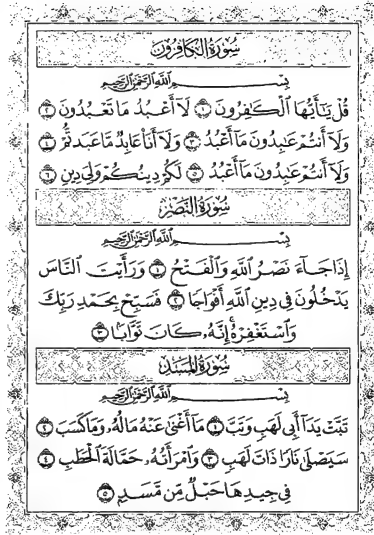 سُورَةُ الْكَافِرُونَ
بِسْمِ اللَّهِ الرَّحْمَٰنِ الرَّحِيمِ
قُلْ يَٰٓأَيُّهَا الْكَٰفِرُونَ ۝١ لَآ أَعْبُدُ مَا تَعْبُدُونَ ۝٢
وَلَآ أَنتُمْ عَٰبِدُونَ مَآ أَعْبُدُ ۝٣ وَلَآ أَنَا۠ عَابِدٌ مَّا عَبَدتُّمْ ۝٤
وَلَآ أَنتُمْ عَٰبِدُونَ مَآ أَعْبُدُ ۝٥ لَكُمْ دِينُكُمْ وَلِىَ دِينِ ۝٦
سُورَةُ النَّصْرِ
بِسْمِ اللَّهِ الرَّحْمَٰنِ الرَّحِيمِ
إِذَا جَآءَ نَصْرُ اللَّهِ وَالْفَتْحُ ۝١ وَرَأَيْتَ النَّاسَ
يَدْخُلُونَ فِى دِينِ اللَّهِ أَفْوَاجًا ۝٢ فَسَبِّحْ بِحَمْدِ رَبِّكَ
وَاسْتَغْفِرْهُ ۚ إِنَّهُۥ كَانَ تَوَّابًا ۝٣
سُورَةُ الْمَسَدِ
بِسْمِ اللَّهِ الرَّحْمَٰنِ الرَّحِيمِ
تَبَّتْ يَدَآ أَبِى لَهَبٍ وَتَبَّ ۝١ مَآ أَغْنَىٰ عَنْهُ مَالُهُۥ وَمَا كَسَبَ ۝٢
سَيَصْلَىٰ نَارًا ذَاتَ لَهَبٍ ۝٣ وَامْرَأَتُهُۥ حَمَّالَةَ الْحَطَبِ ۝٤
فِى جِيدِهَا حَبْلٌ مِّن مَّسَدٍۭ ۝٥